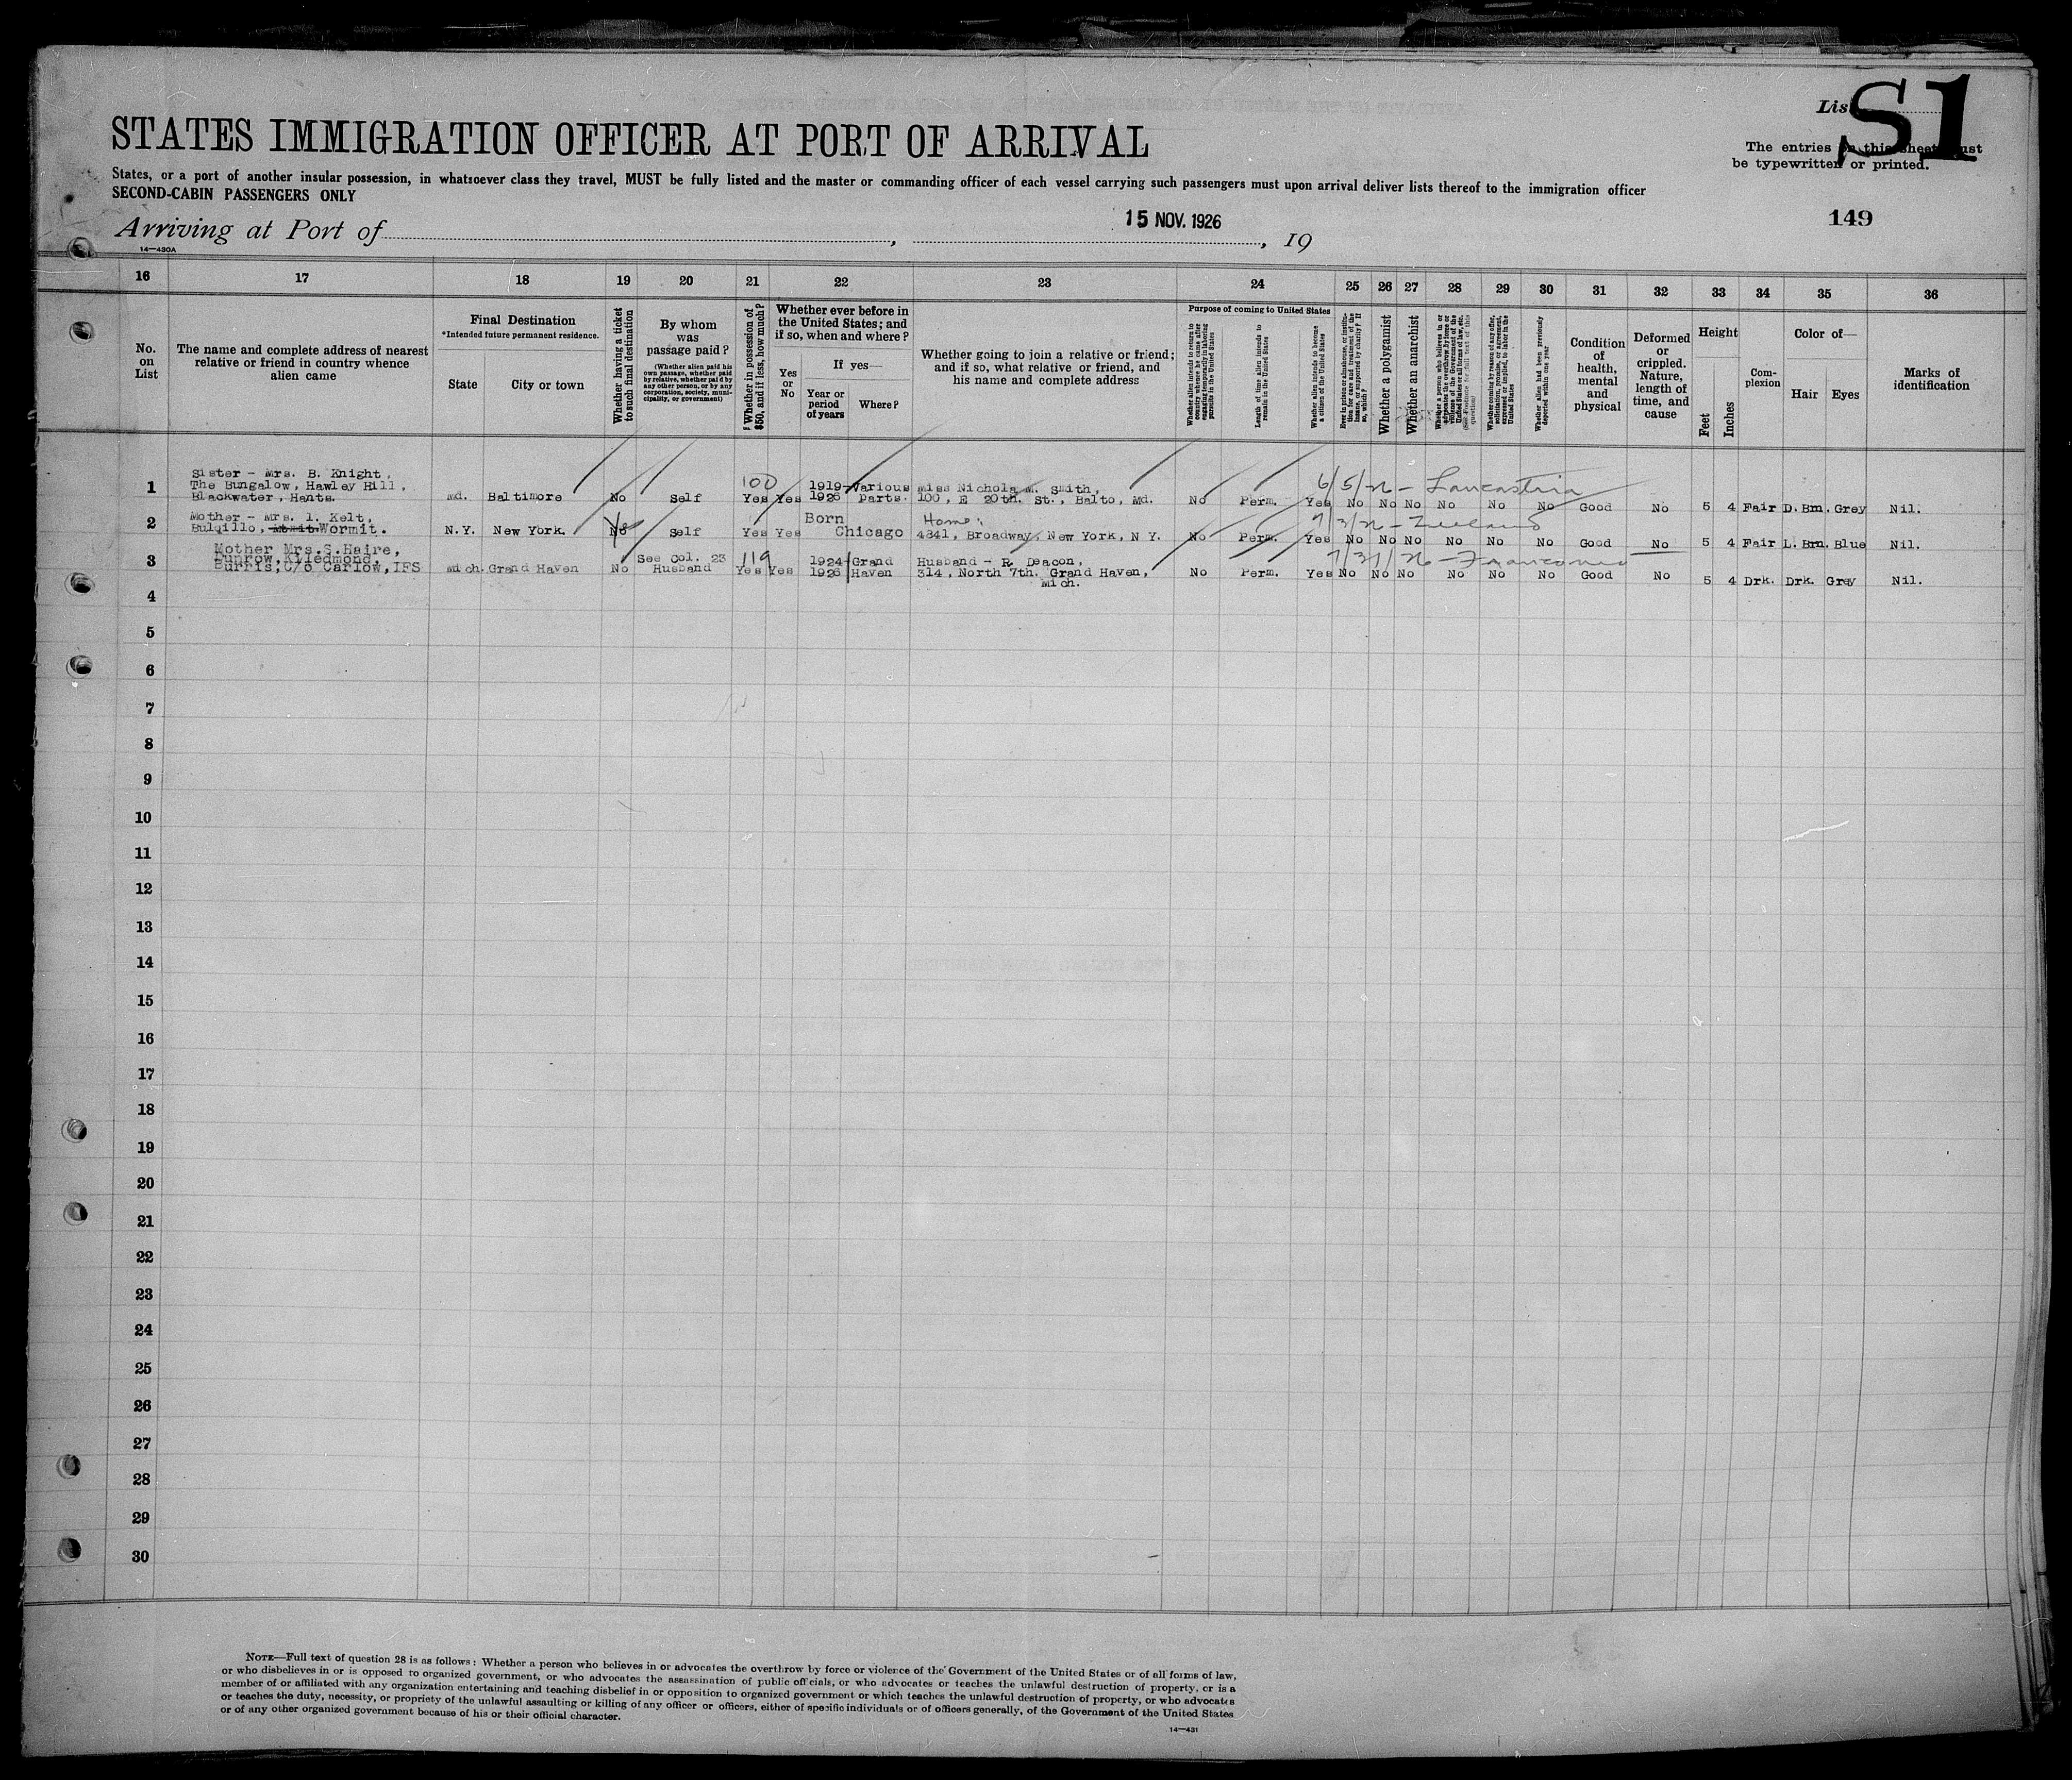 List
S1
STATES IMMIGRATION OFFICER AT PORT OF ARRIVAL
The entries on this sheet must
be typewritten or printed.
States, or a port of another insular possession, in whatsoever class they travel, MUST be fully listed and the master or commanding officer of each vessel carrying such passengers must upon arrival deliver lists thereof to the immigration officer
SECOND-CABIN PASSENGERS ONLY
149
Arriving at Port of , 15 NOV. 1926 , 19
14—430A
16 17 18 19 20 21 22 23 24 25 26 27 28 29 30 31 32 33 34 35 36
No. on List
The name and complete address of nearest relative or friend in country whence alien came
Final Destination
*Intended future permanent residence.
State
City or town
Whether having a ticket to such final destination
By whom was passage paid?
(Whether alien paid his own passage, whether paid by relative, whether paid by any other person, or by any corporation, society, municipality, or government)
Whether in possession of $50, and if less, how much?
Whether ever before in the United States; and if so, when and where?
Yes or No
If yes—
Year or period of years
Where?
Whether going to join a relative or friend; and if so, what relative or friend, and his name and complete address
Purpose of coming to United States
Whether alien intends to return to country whence he came after engaging temporarily in laboring pursuits in the United States
Length of time alien intends to remain in the United States
Whether alien intends to become a citizen of the United States
Ever in prison or almshouse, or institution for care and treatment of the insane, or supported by charity? If so, which?
Whether a polygamist
Whether an anarchist
Whether a person who believes in or advocates the overthrow by force or violence of the Government of the United States or all forms of law, etc. (See footnote for full text of this question)
Whether coming by reason of any offer, solicitation, promise, or agreement, expressed or implied, to labor in the United States
Whether alien has been previously deported within one year
Condition of health, mental and physical
Deformed or crippled. Nature, length of time, and cause
Height
Feet
Inches
Complexion
Color of—
Hair
Eyes
Marks of identification
1 Sister - Mrs. B. Knight,
The Bungalow, Hawley Hill,
Blackwater, Hants. Md. Baltimore No Self 100 Yes Yes 1919-1926 Various parts. Miss Nichola M. Smith,
100, E 20th. St., Balto, Md. No Perm. Yes No No No No No No Good No 5 4 Fair D. Brn. Grey Nil.
6/5/26 - Lancastria
2 Mother - Mrs. I. Kelt,
Bulgillo, Wormit. N.Y. New York. No Self Yes Yes Born Chicago Home:
4841, Broadway, New York, N Y. No Perm. Yes No No No No No No Good No 5 4 Fair L. Brn. Blue Nil.
7/3/26 - Zeeland
3 Mother Mrs. S. Haire,
Dunrow, Killedmond,
Burris, C/o Carlow, IFS Mich. Grand Haven No See Col. 23 Husband 119 Yes Yes 1924 1926 Grand Haven Husband - R. Deacon,
314, North 7th. Grand Haven,
Mich. No Perm. Yes No No No No No No Good No 5 4 Drk. Drk. Grey Nil.
7/31/26 - Franconia
4
5
6
7
8
9
10
11
12
13
14
15
16
17
18
19
20
21
22
23
24
25
26
27
28
29
30
NOTE—Full text of question 28 is as follows: Whether a person who believes in or advocates the overthrow by force or violence of the Government of the United States or of all forms of law,
or who disbelieves in or is opposed to organized government, or who advocates the assassination of public officials, or who advocates or teaches the unlawful destruction of property, or is a
member of or affiliated with any organization entertaining and teaching disbelief in or opposition to organized government or which teaches the unlawful destruction of property, or who advocates
or teaches the duty, necessity, or propriety of the unlawful assaulting or killing of any officer or officers, either of specific individuals or of officers generally, of the Government of the United States
or of any other organized government because of his or their official character.
14—431